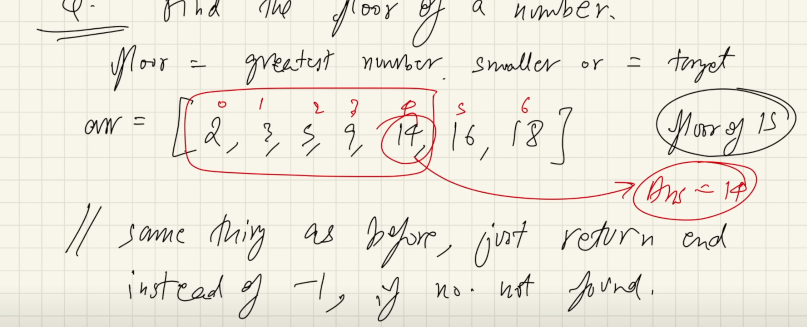 Q. Find the floor of a number.
floor = greatest number smaller or = target
0 1 2 3 4 5 6
arr = [2, 3, 5, 9, 14, 16, 18] floor of 15
Ans = 14
// same thing as before, just return end
instead of -1, if no. not found.